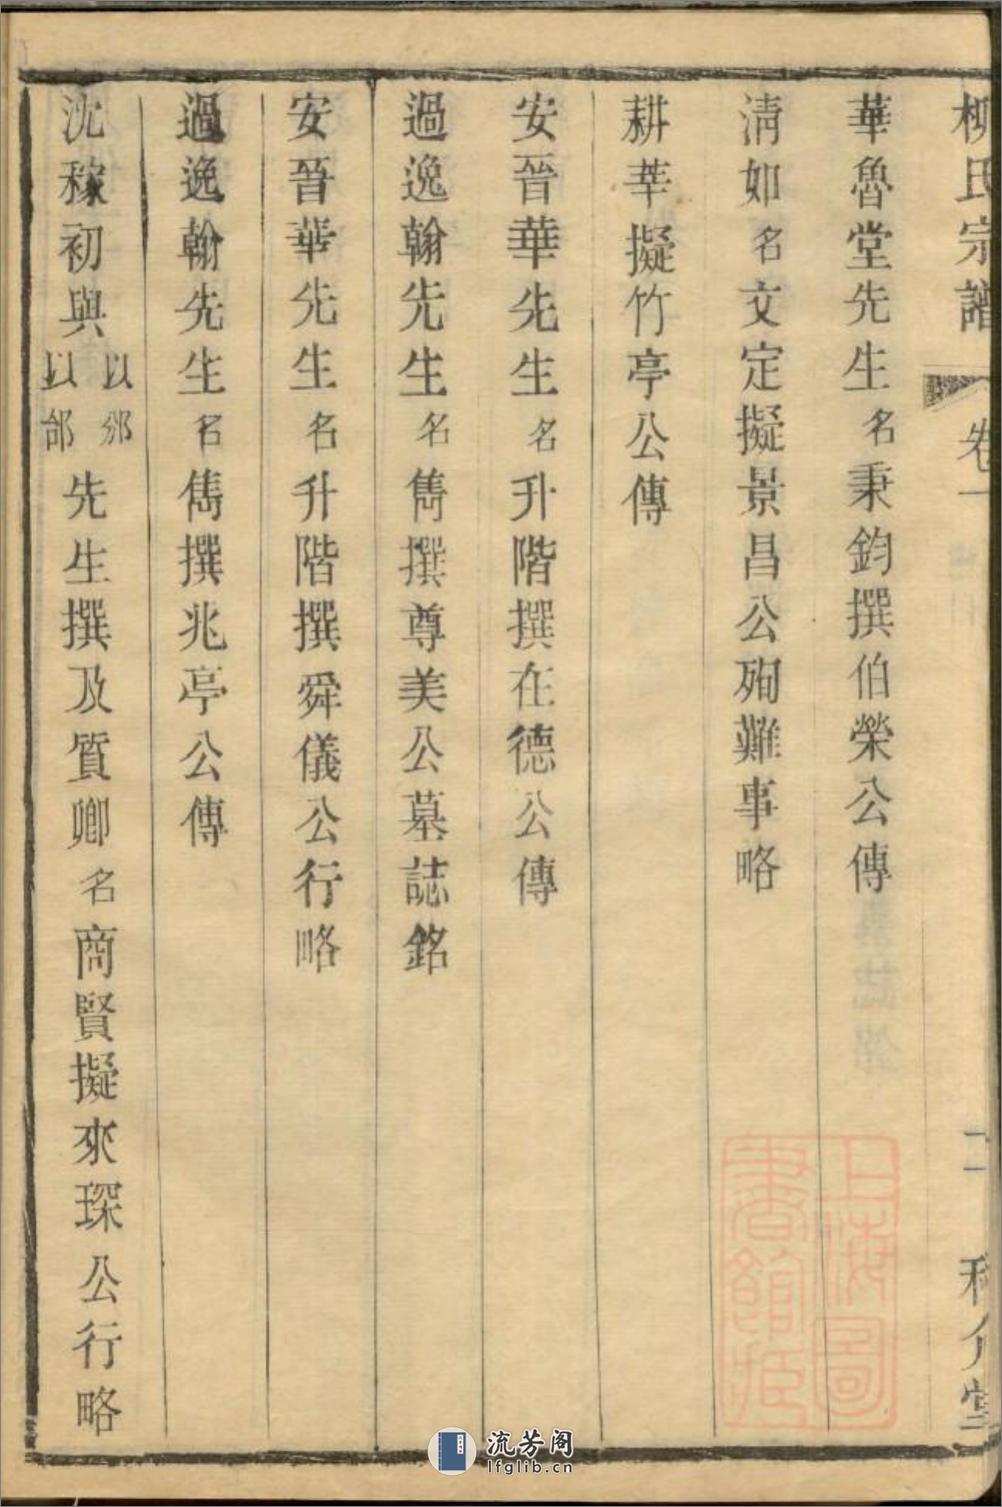 柳氏宗譜 卷一 二
華魯堂先生名秉鈞撰伯榮公傳
清如名文定擬景昌公殉難事略
耕莘擬竹亭公傳
安晉華先生名升階撰在德公傳
過逸翰先生名雋撰尊美公墓誌銘
安晉華先生名升階撰舜儀公行略
過逸翰先生名雋撰兆亭公傳
沈稼初與以邠以郃先生撰及質卿名商賢擬來琛公行略
上海圖書館藏
流芳阁
lfglib.cn